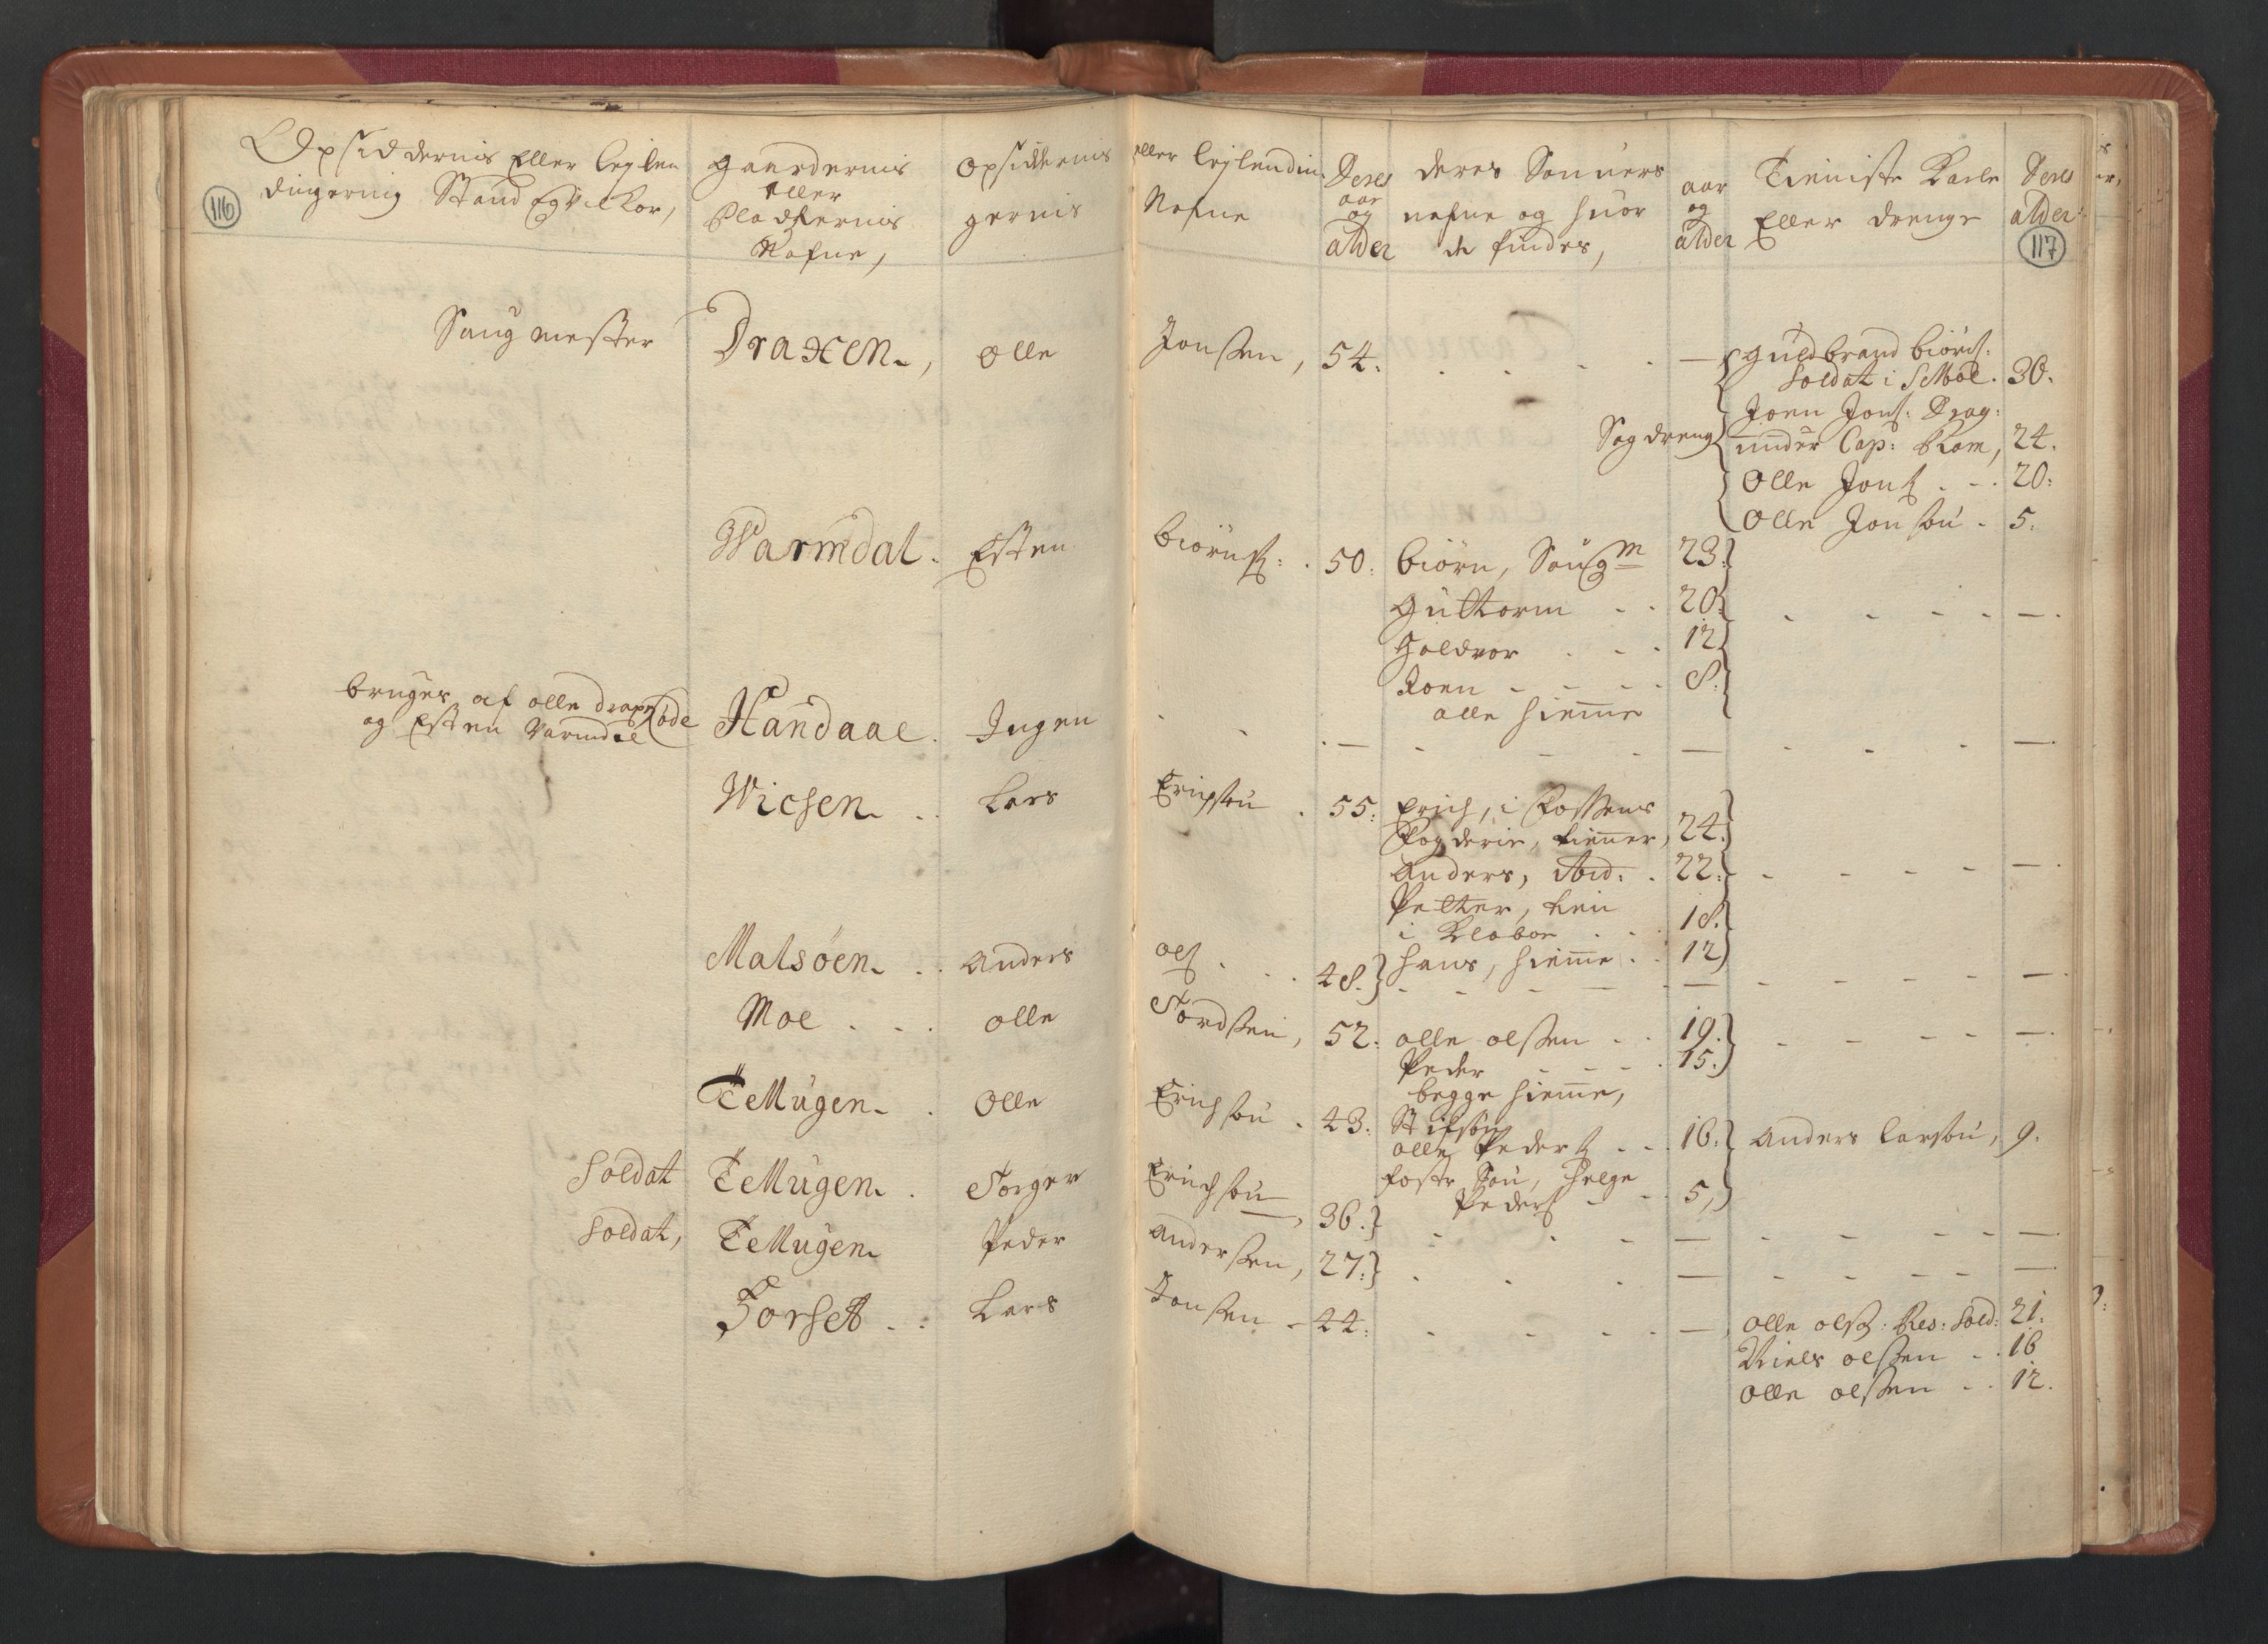 116
Opsiddernis Eller leylen
dingernis Stand Eg Vilkor,
Gaardernis
eller
Pladzernis
Nafne,
Opsiddernis eller leylendin
gernis Nafne
Deres
aar
og
alder
deres Sønners
nafne og huor
de findes,
aar
og
alder
Tieniste Karle
Eller drenge
Deres
alder
117
Saugmester Draxen, Olle Jonssen, 54. Guldbrand biörs:
Soldat i Selboe. 30.
Sag dreng Joen Jons: Drag:
under Cap: Kam, 24.
Olle Jons 20:
Olle Jonsøn 5.
Warmdal. Esten biörns: 50: biörn, Saugm 23.
Guttorm 20.
Haldvor 12
Joen 8.
alle hieme
bruges af olle draxen
og Esten Varmdal
Øde Handaal Ingen
Wichen Lars Erichsøn 55: Erich, i Fossens
Fogderie, tienner, 24.
Anders, Ibid: 22.
Petter, tien
i Klæboe 18.
hans, hieme 12
Malsøen Anders ols 48.
Moe Olle Tordsen, 52. olle olssen 19.
Peder 15.
begge hieme,
Tellugen Olle Erichsøn 43. Stifsøn
olle Peders 16. Anders larsøn, 9.
foster Søn, helge
Peders 5,
Soldat Tellugen Torger Erichsøn 36.
Soldat, Tellugen Peder Anderssen, 27.
Forset Lars Jonssen 44. olle olss: Res: Sold: 21.
Niels olssen 16
olle olssen 12.